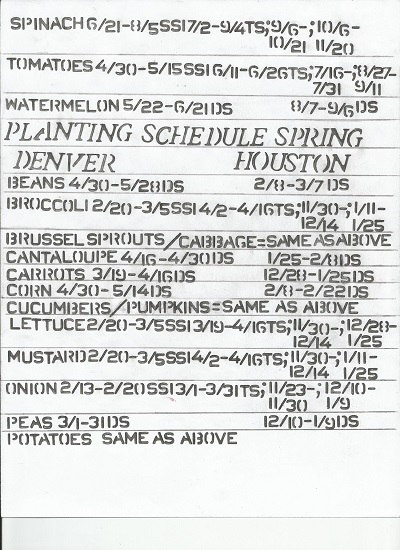 SPINACH 6/21-8/5SSI7/2-9/4TS; 9/6-; 10/6-
10/21 11/20
TOMATOES 4/30-5/15SSI 6/11-6/26TS; 7/16-; 8/27-
7/31 9/11
WATERMELON 5/22-6/21DS 8/7-9/6DS
PLANTING SCHEDULE SPRING
DENVER HOUSTON
BEANS 4/30-5/28DS 2/8-3/7DS
BROCCOLI 2/20-3/5SSI 4/2-4/16TS; 11/30-; 1/11-
12/14 1/25
BRUSSEL SPROUTS/CABBAGE=SAME AS ABOVE
CANTALOUPE 4/16-4/30DS 1/25-2/8DS
CARROTS 3/19-4/16DS 12/28-1/25DS
CORN 4/30-5/14DS 2/8-2/22DS
CUCUMBERS/PUMPKINS=SAME AS ABOVE
LETTUCE 2/20-3/5SSI 3/19-4/16TS; 11/30-; 12/28-
12/14 1/25
MUSTARD 2/20-3/5SSI 4/2-4/16TS; 11/30-; 1/11-
12/14 1/25
ONION 2/13-2/20SSI 3/1-3/31TS; 11/23-; 12/10-
11/30 1/9
PEAS 3/1-31DS 12/10-1/9DS
POTATOES SAME AS ABOVE